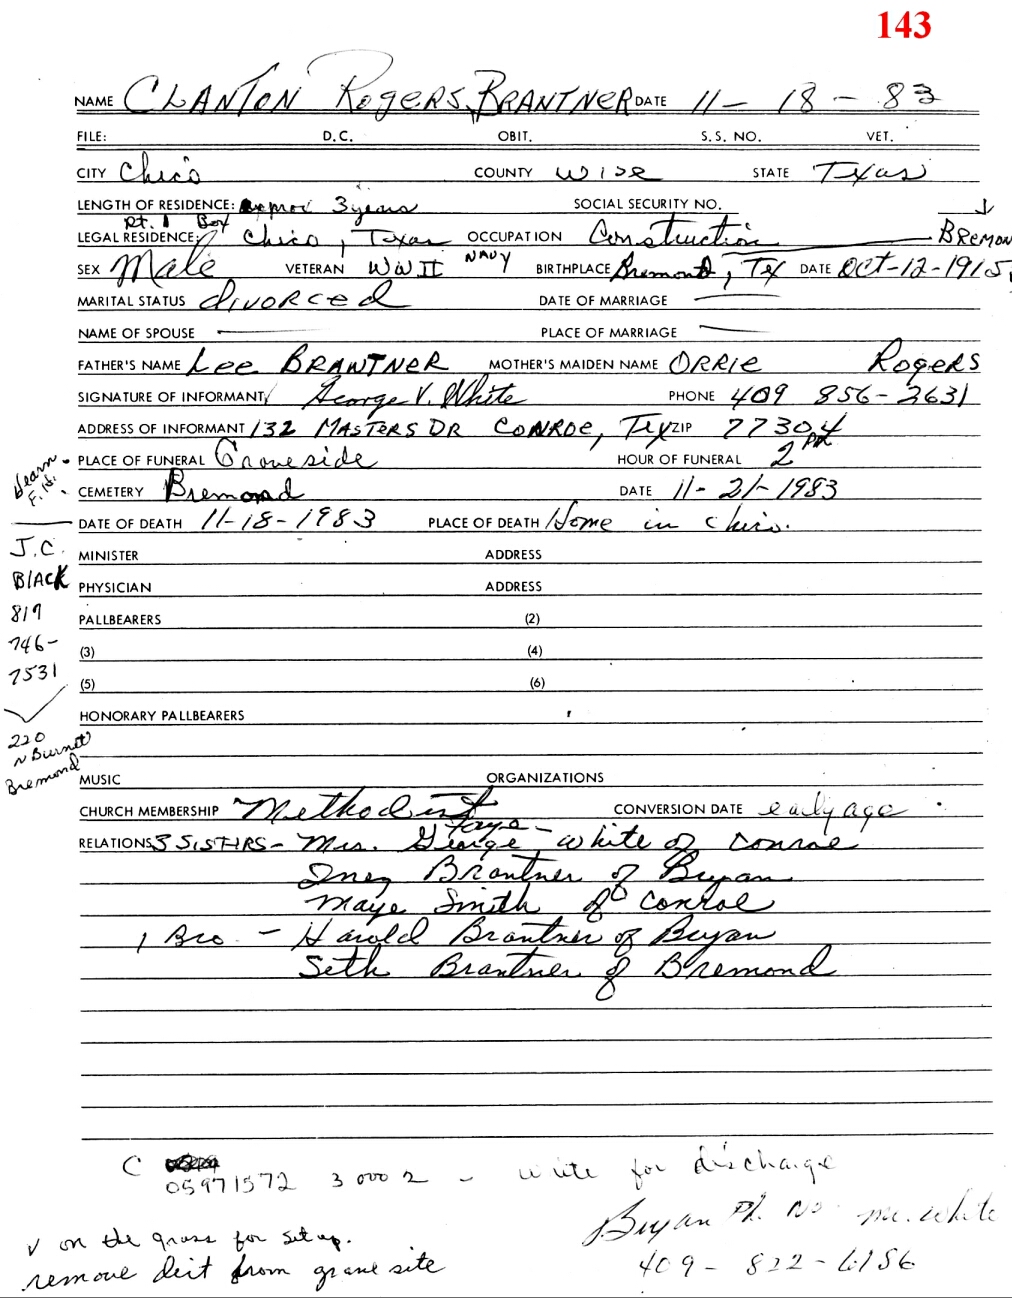 143
NAME CLANTON ROGERS BRANTNER DATE 11-18-83
FILE: D.C. OBIT. S.S. NO. VET.
CITY Chico COUNTY Wise STATE Texas
LENGTH OF RESIDENCE: approx 3 years SOCIAL SECURITY NO.
Rt. 1 Box
LEGAL RESIDENCE: Chico, Texas OCCUPATION Construction BREMON
SEX Male VETERAN WW II NAVY BIRTHPLACE Bremond, Tex DATE Oct-12-1915
MARITAL STATUS divorced DATE OF MARRIAGE
NAME OF SPOUSE PLACE OF MARRIAGE
FATHER'S NAME Lee BRANTNER MOTHER'S MAIDEN NAME ORRIE Rogers
SIGNATURE OF INFORMANT George V. White PHONE 409 856-2631
ADDRESS OF INFORMANT 132 MASTERS DR CONROE, Tex ZIP 77304
PLACE OF FUNERAL Graveside HOUR OF FUNERAL 2 PM
CEMETERY Bremond DATE 11-21-1983
DATE OF DEATH 11-18-1983 PLACE OF DEATH Home in Chico.
MINISTER ADDRESS
PHYSICIAN ADDRESS
PALLBEARERS (2)
(3) (4)
(5) (6)
HONORARY PALLBEARERS
MUSIC ORGANIZATIONS
CHURCH MEMBERSHIP Methodist CONVERSION DATE early age
Faye
RELATIONS 3 SISTERS - Mrs. George White of Conroe
Inez Brantner of Bryan
Maye Smith of Conroe
1 Bro. - Harold Brantner of Bryan
Seth Brantner of Bremond
Hearn
F. H.
J.C.
BlACK
817
746-
7531
220
N Burnet
Bremond
C
05971572 30002 - write for discharge
Bryan Ph. No. Mr. White
409-822-6186
✓ on the grass for set up.
remove dirt from grave site